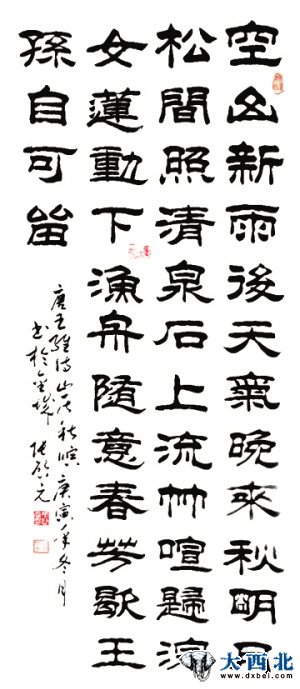 空山新雨後天氣晚来秋明月
松間照清泉石上流竹喧歸浣
女蓮動下漁舟随意春芳歇王
孫自可留
唐王維诗山居秋暝 庚寅年冬月
书於金城 张
大西北
www.dxbei.com